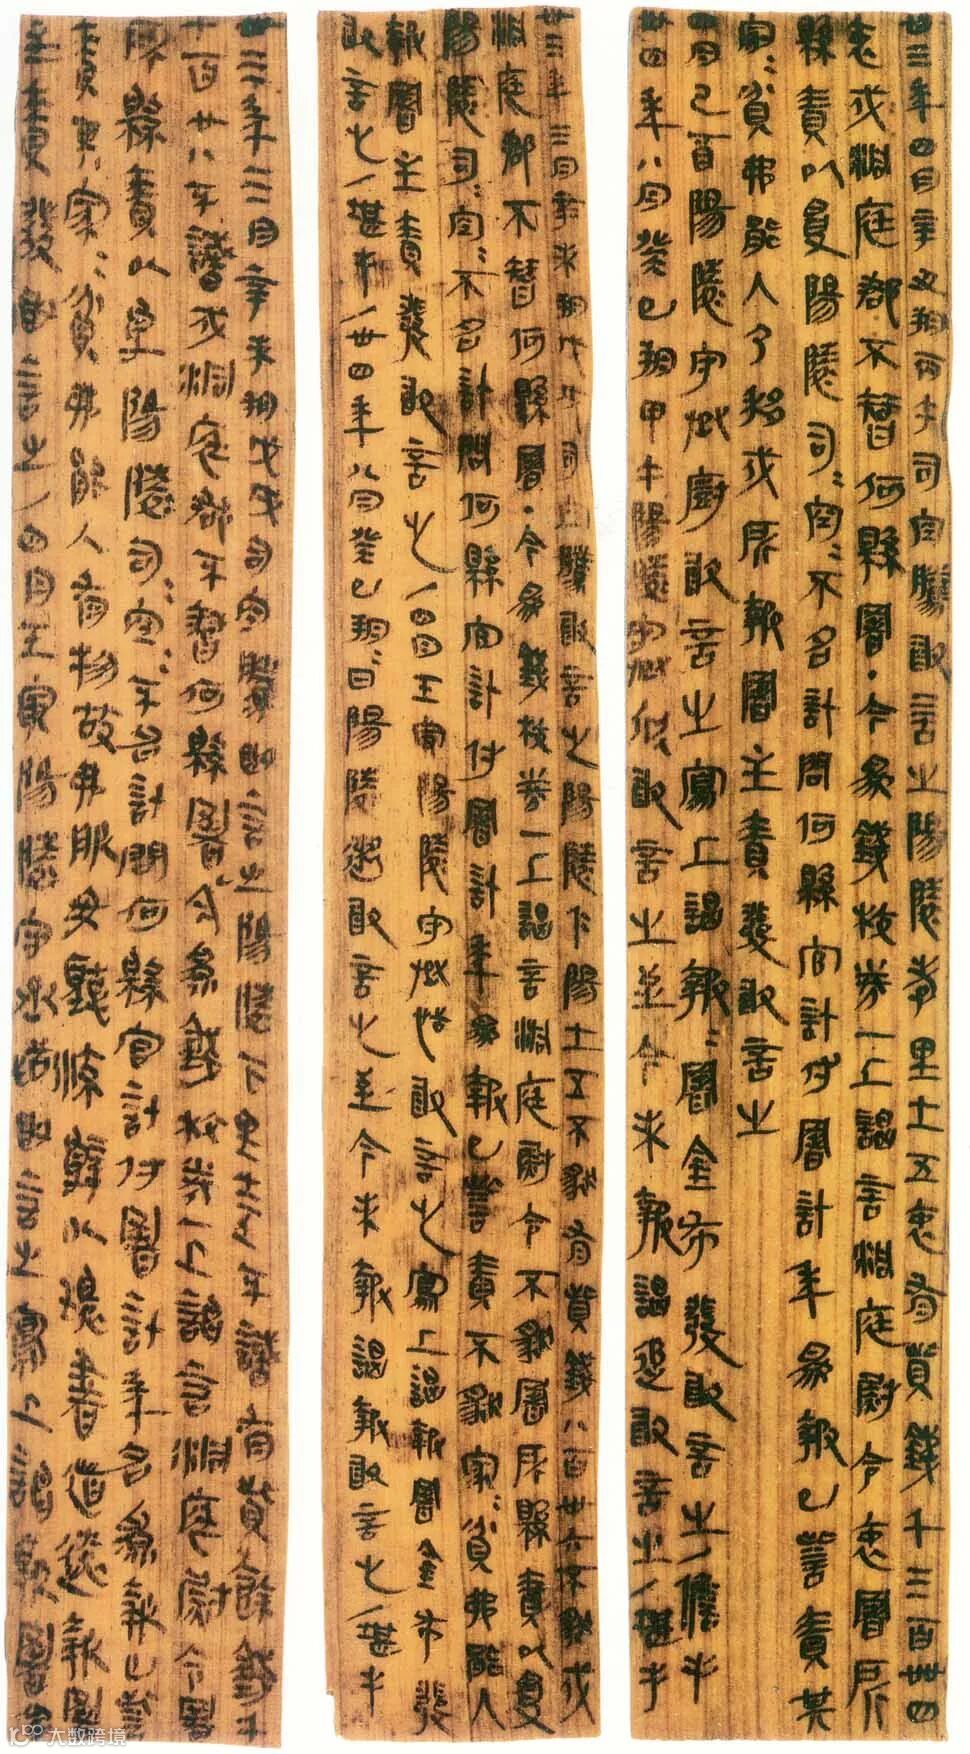 卅三年四月辛丑朔丙午司空騰敢言之陽陵孝里士五衷有貲錢千三百卌四
衷戍洞庭郡不智何縣署·今為錢校券一上謁言洞庭尉令衷署所
縣責以受陽陵司=空=不名計問何縣官計付署計年為報已訾責其
家=貧弗能入乃移戍所報署主責發敢言之
四月己酉陽陵守丞廚敢言之寫上謁報=署金布發敢言之/儋手
卅四年八月癸巳朔甲午陽陵守丞欣敢言之至今未報謁追敢言之/堪手
卅三年三月辛未朔戊戌司空騰敢言之陽陵仁陽士五不豤有貲錢八百卅六不豤戍
洞庭郡不智何縣署·今為錢校券一上謁言洞庭尉令不豤署所縣責以受
陽陵司=空=不名計問何縣官計付署計年為報已訾責不豤家=貧弗能入
報署主責發敢言之/四月壬寅陽陵守丞恬敢言之寫上謁報署金布發
敢言之/堪手/卅四年八月癸巳朔=日陽陵遬敢言之至今未報謁報敢言之/堪手
卅三年三月辛未朔戊戌司空騰敢言之陽陵下里士五不識有貲餘錢千
七百廿八不識戍洞庭郡不智何縣署今為錢校券一上謁言洞庭尉令署
所縣責以受陽陵司=空=不名計問何縣官計付署計年名為報已訾
責其家=貧弗能入有物故弗服毋聽流辭以環書道遠報署
主責發敢言之/四月壬寅陽陵守丞恬敢言之寫上謁報署金
大数跨境